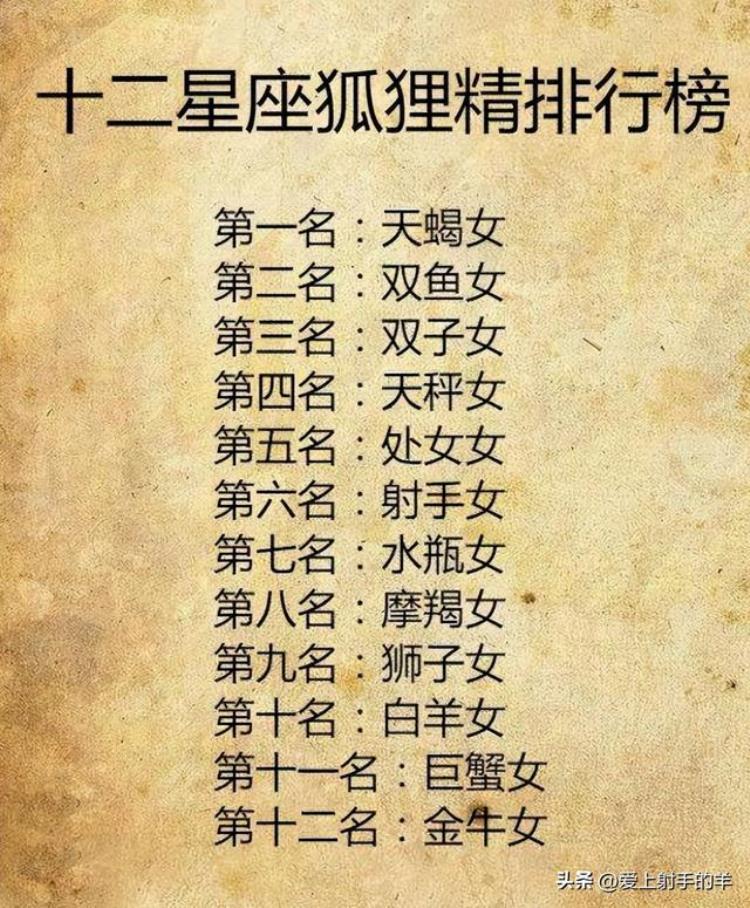 十二星座狐狸精排行榜
第一名：天蝎女
第二名：双鱼女
第三名：双子女
第四名：天秤女
第五名：处女女
第六名：射手女
第七名：水瓶女
第八名：摩羯女
第九名：狮子女
第十名：白羊女
第十一名：巨蟹女
第十二名：金牛女
头条 @爱上射手的羊